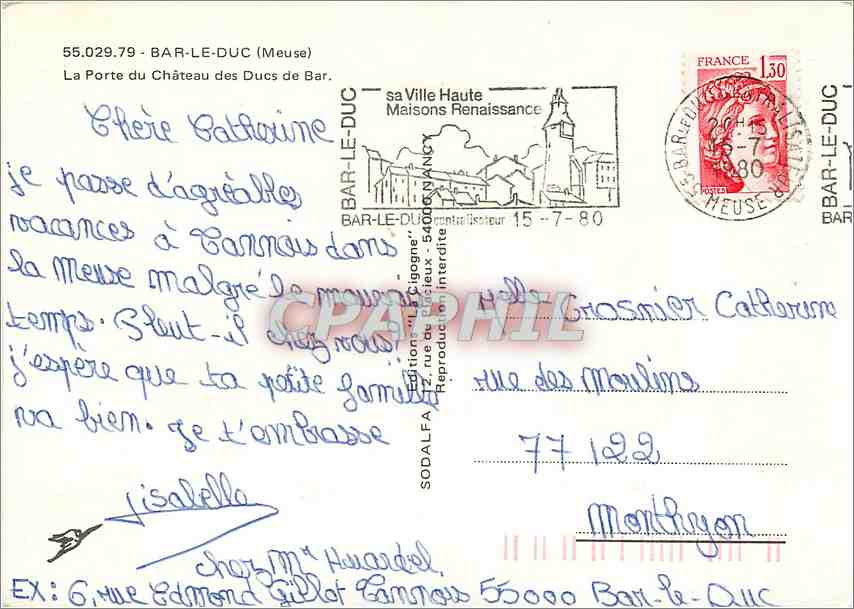 55.029.79 - BAR-LE-DUC (Meuse)
La Porte du Château des Ducs de Bar.
Chère Catherine
je passe d'agréables
vacances à Tannois dans
la Meuse malgré le mauvais
temps. Pleut-il chez vous?
j'espère que ta petite famille
va bien. Je t'embrasse
Lisabelle
chez Mr Huardel,
EX: 6, rue Edmond Gillot Tannois 55000 Bar-le-Duc
BAR-LE-DUC
sa Ville Haute
Maisons Renaissance
BAR-LE-DUC centralisateur 15-7-80
FRANCE 1,30
POSTES
55-BAR LE DUC CENTRALISATEUR
20H15
15-7
1980
MEUSE
BAR-LE-DUC
BAR
SODALFA 412, rue du Placieux - 54000 NANCY
Editions "La Cigogne"
Reproduction interdite
CPAPHIL
Melle Crosnier Catherine
rue des Moulins
77122
Monthyon